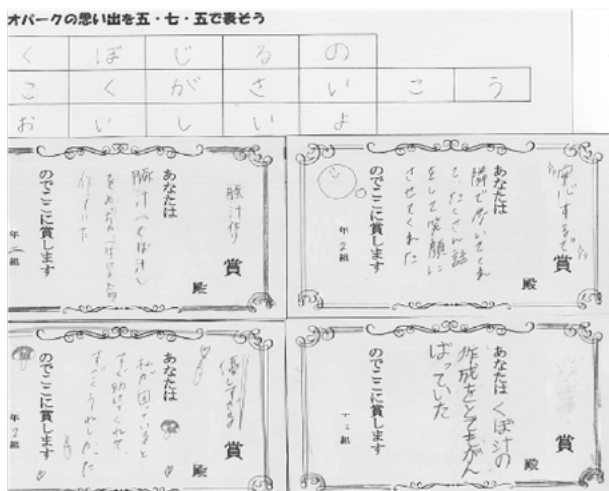 オパークの思い出を五・七・五で表そう
くぼじるの
こくがさいこう
おいしいよ
豚汁作り 賞
殿
あなたは
豚汁(くぼ汁)
のでここに賞します
年 二 組
賞
殿
あなたは
隣で歩いてくれ
て、たくさん話
をして笑顔に
させてくれた
のでここに賞します
年 2 組
優しすぎる 賞
殿
あなたは
私が困っていると
すぐ助けてくれて、
すごくうれしかった
のでここに賞します
年 2 組
賞
殿
あなたは くぼ汁の
作成をとてもがん
ばっていた
のでここに賞します